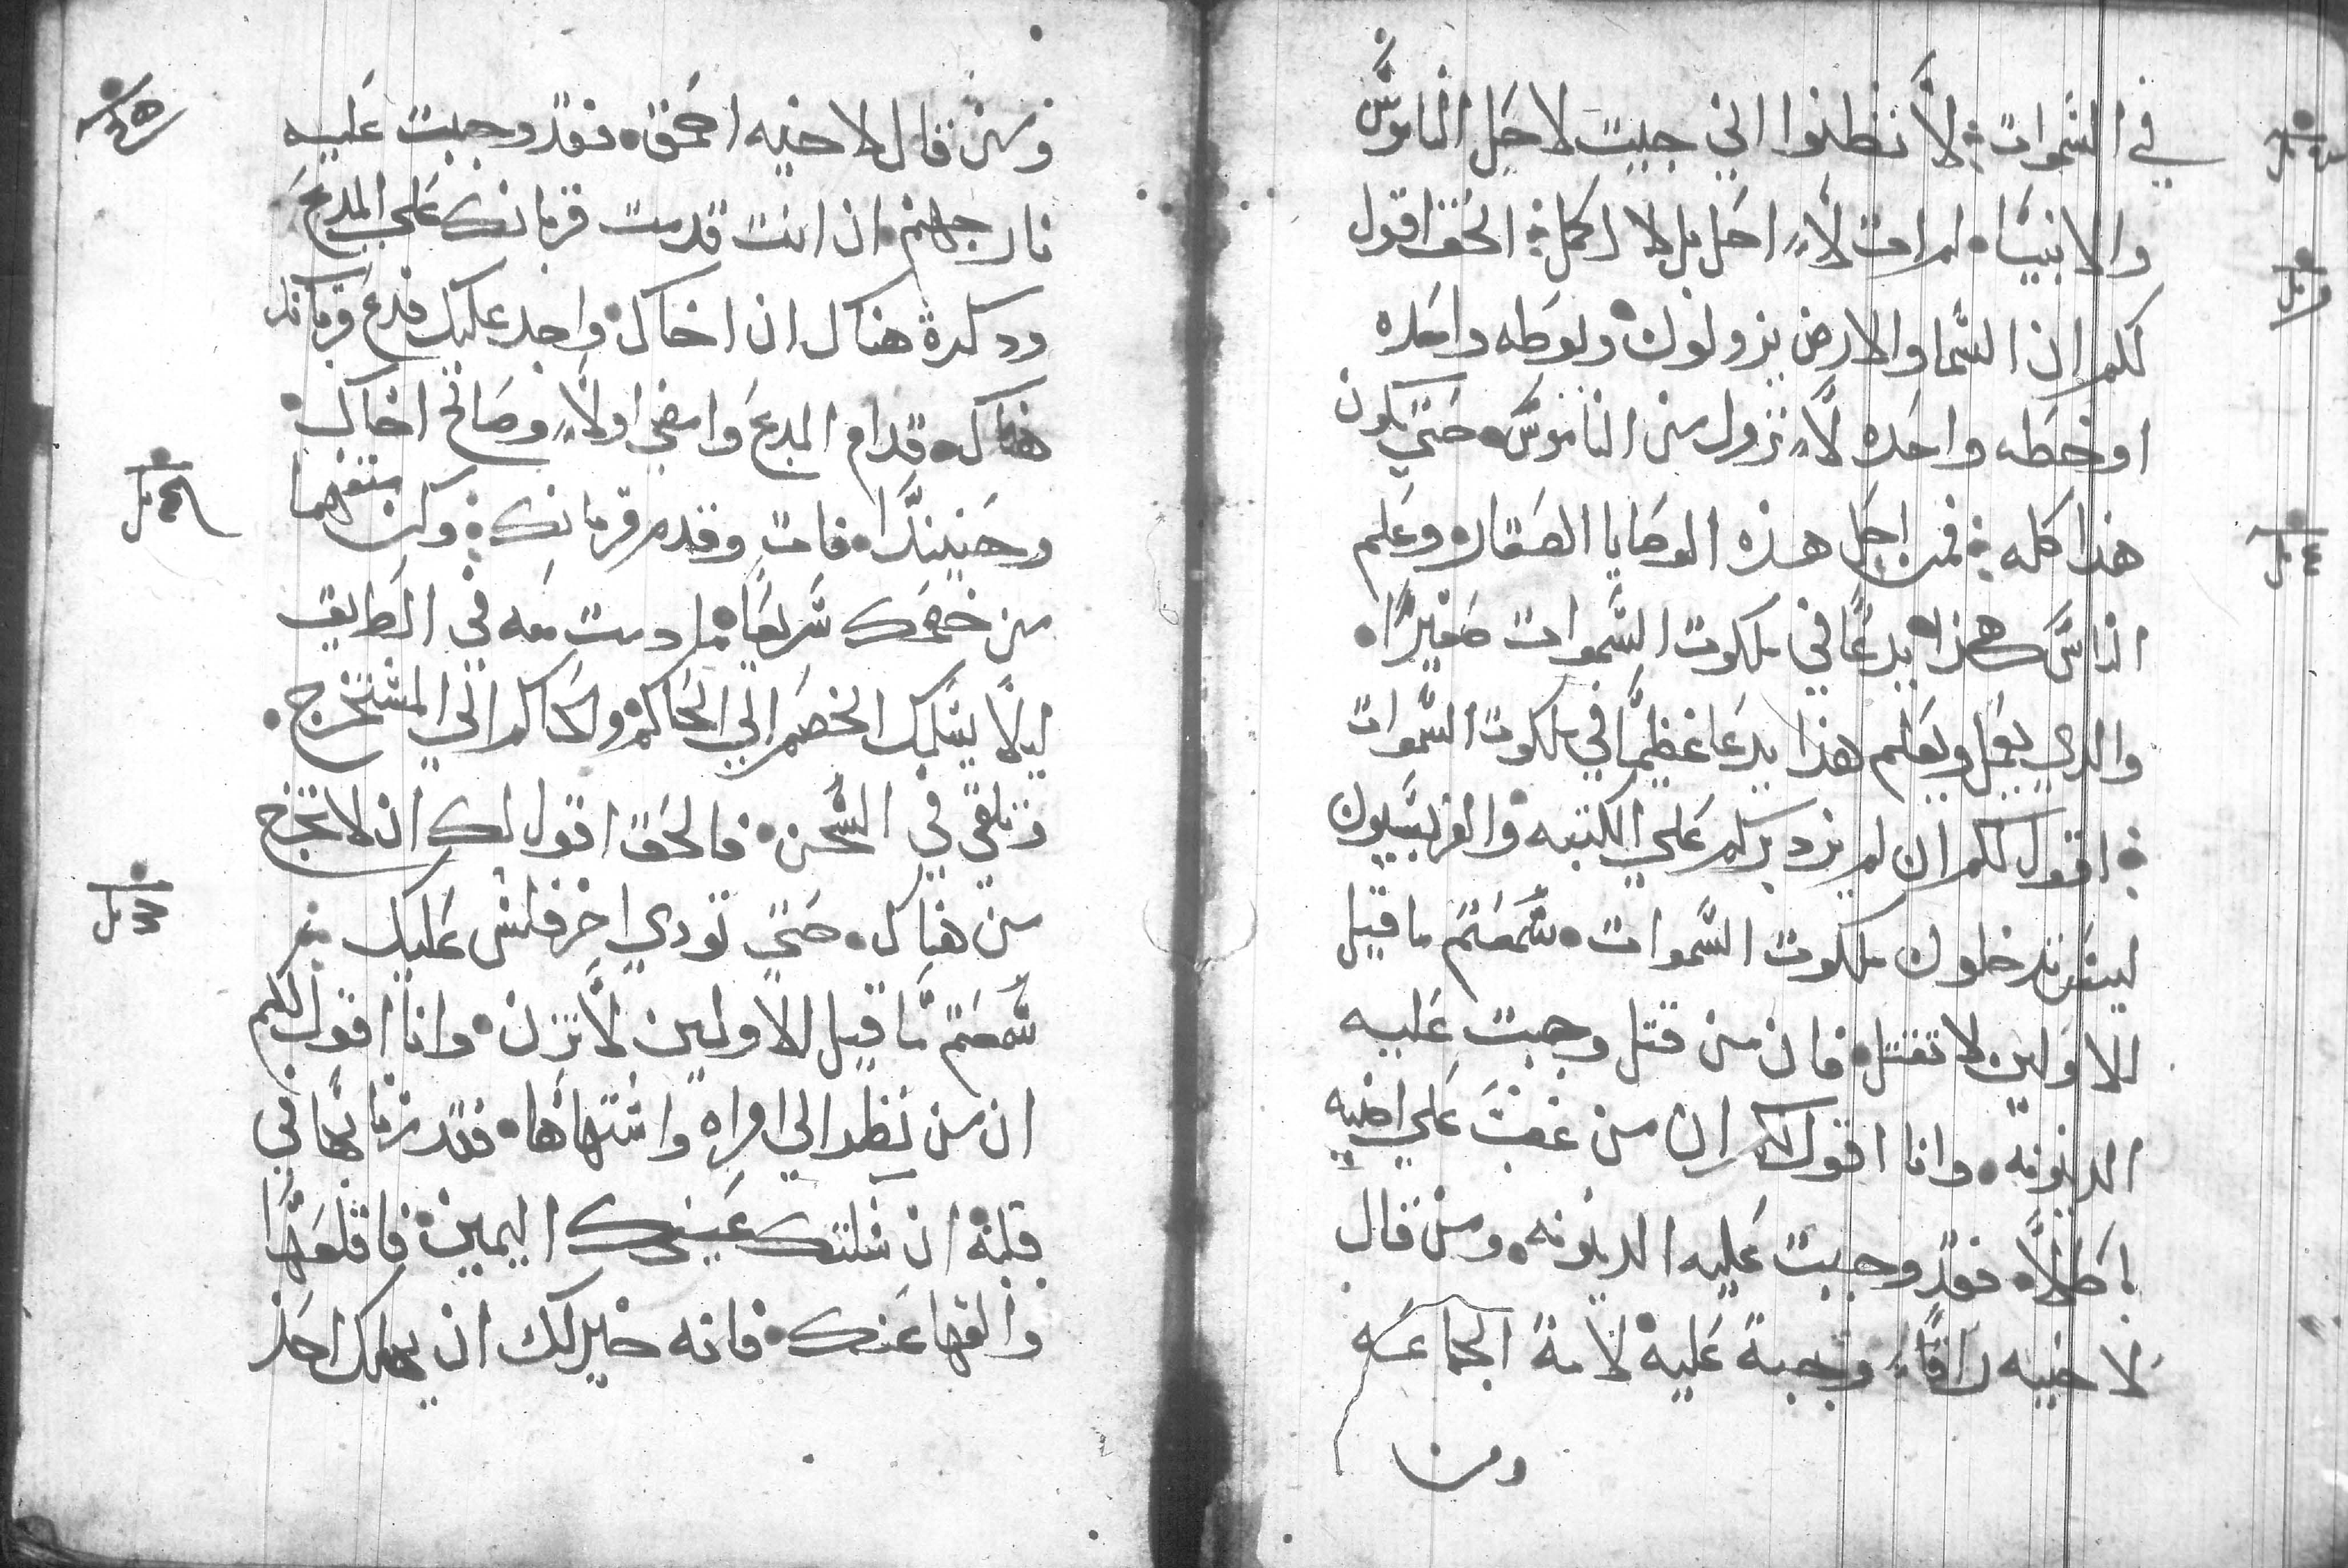 في السموات لا تظنوا اني جيت لاحل الناموس
والانبيا لم ات لا احل بل لاكمل الحق اقول
لكم ان السما والارض يزولون ويوطه واحده
او خطه واحده لا تزول من الناموس حتي يكون
هذا كله فمن احل هذه الوصايا الصغار وعلم
الناس هكذا يدعا في ملكوت السموات صغيرا
والدي يعمل ويعلم هذا يدعا عظيما في ملكوت السموات
اقول لكم ان لم يزد بركم علي الكتبه والفريسيون
ليس تدخلون ملكوت السموات سمعتم ما قيل
الاولين لا تقتل فان من قتل وجبت عليه
الدينونه وانا اقول لكم ان من غضب علي اخيه
باطلا فقد وجبت عليه الدينونه ومن قال
لاخيه راقا وجبة عليه لامة الجماعه
ومن
ومن قال لاخيه احمق فقد وجبت عليه
نار جهنم ان انت قدمت قربانك علي المدبح
ودكرة هناك ان اخاك واجد عليك فدع قربانك
هناك قدام المدبح وامضي اولا وصالح اخاك
وحينيدا فات وقدم قربانك وكن متفهما
من خصمك سريعا ما دمت معه في الطريق
ليلا يسلمك الخصم الي الحاكم والحاكم الي المستخرج
وتلقي في السجن فالحق اقول لك ان لا تخرج
من هناك حتي تودي اخر فلس عليك
سمعتم ما قيل للاولين لا تزن وانا اقول لكم
ان من نظر الي امراه واشتهاها فقد زنا بها في
قلبه ان شلتك عينك اليمين فاقلعها
والقها عنك فانه خير لك ان يهلك احد